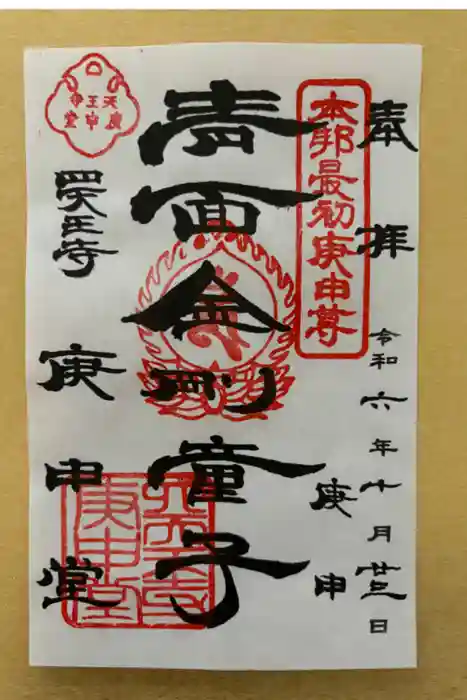 奉拝
令和六年十月廿三日
庚申
本邦最初庚申尊
青面金剛童子
四天王寺
庚申堂
天王寺
庚申堂
四天王寺
庚申堂